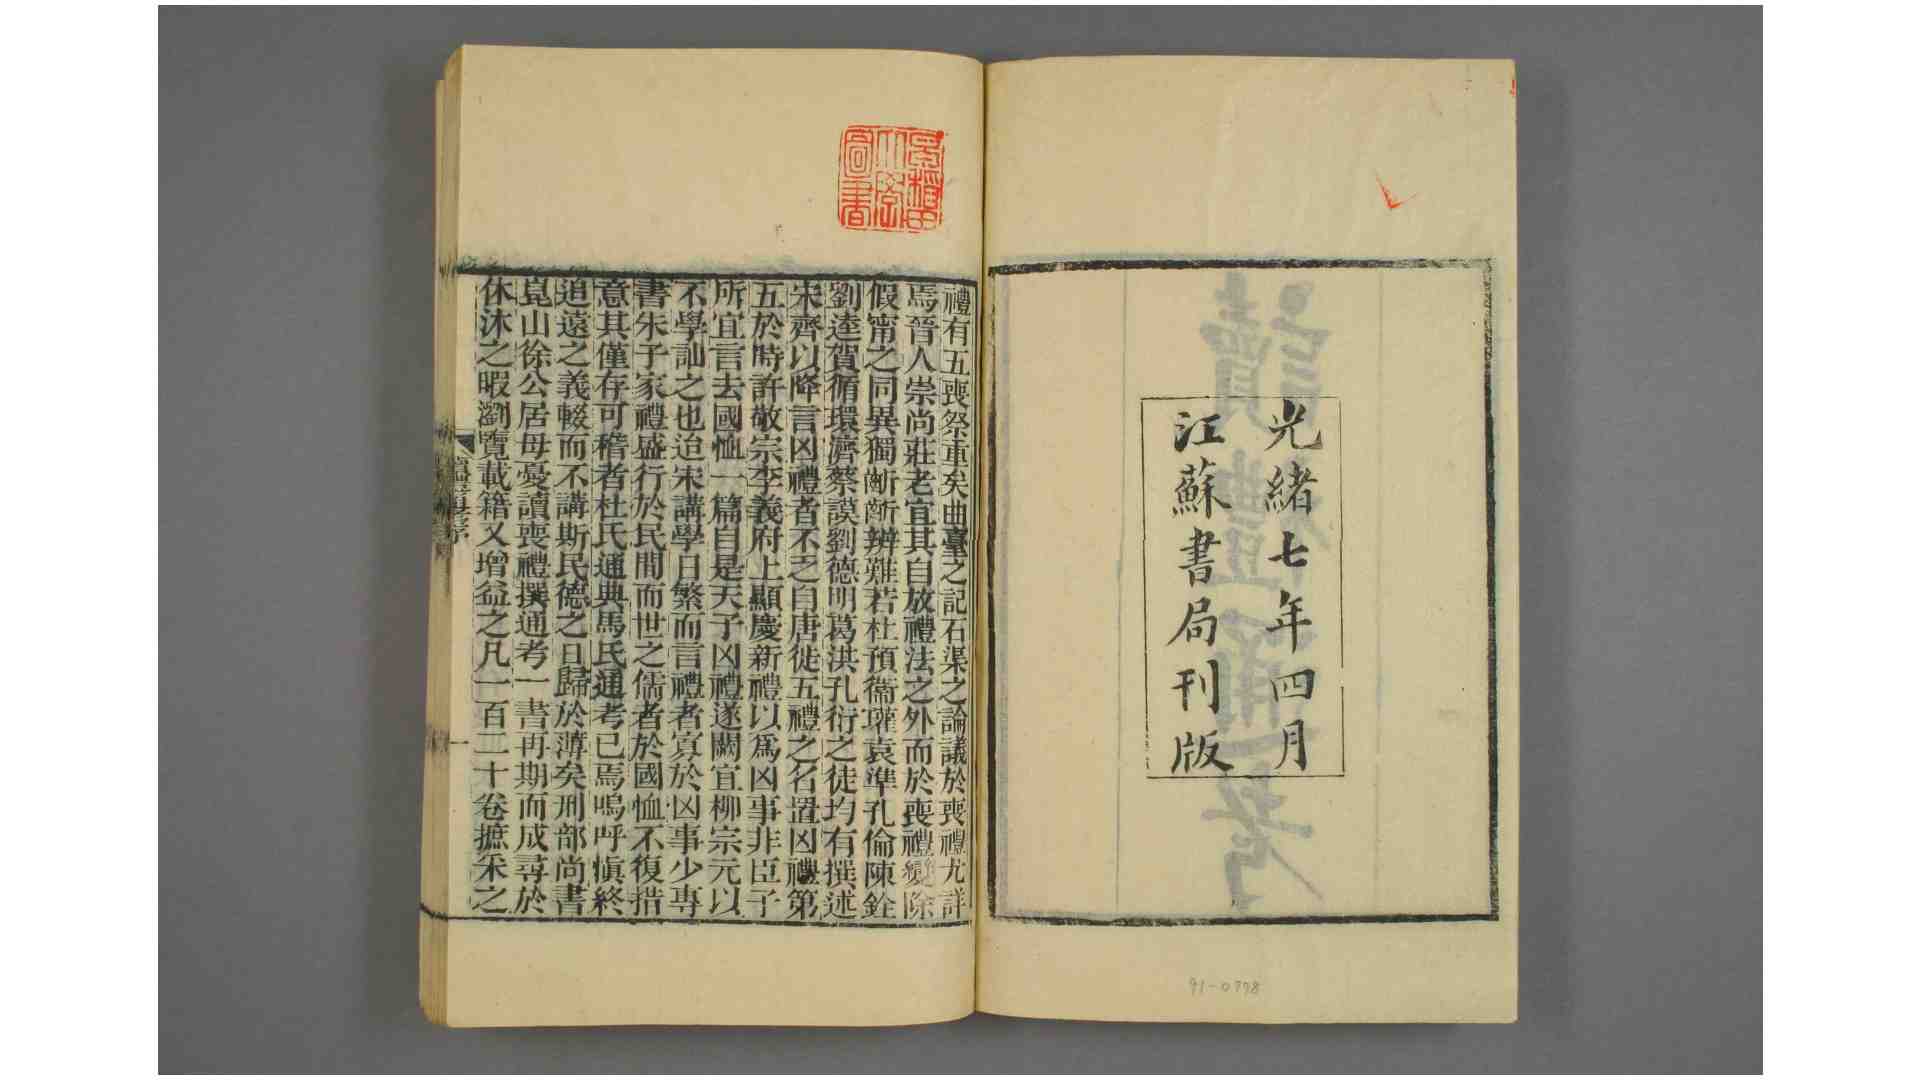 光緒七年四月
江蘇書局刊版
91-0778
早稲田大學圖書
禮有五喪祭重矣曲臺之記石渠之論議於喪禮尤詳
焉晉人崇尚莊老宜其自放禮法之外而於喪禮變除
假甯之同異獨斷斷辨難若杜預衞瓘袁準孔倫陳銓
劉逵賀循環濟蔡謨劉德明葛洪孔衍之徒均有撰述
宋齊以降言凶禮者不乏自唐徙五禮之名置凶禮第
五於時許敬宗李義府上顯慶新禮以爲凶事非臣子
所宜言去國恤一篇自是天子凶禮遂闕宜柳宗元以
不學訕之也迨宋講學日繁而言禮者寡於凶事少專
書朱子家禮盛行於民間而世之儒者於國恤不復措
意其僅存可稽者杜氏通典馬氏通考已焉嗚呼愼終
追遠之義輟而不講斯民德之日歸於薄矣刑部尚書
崑山徐公居母憂讀喪禮撰通考一書再期而成尋於
休沐之暇瀏覽載籍又增益之凡一百二十卷摭采之
一